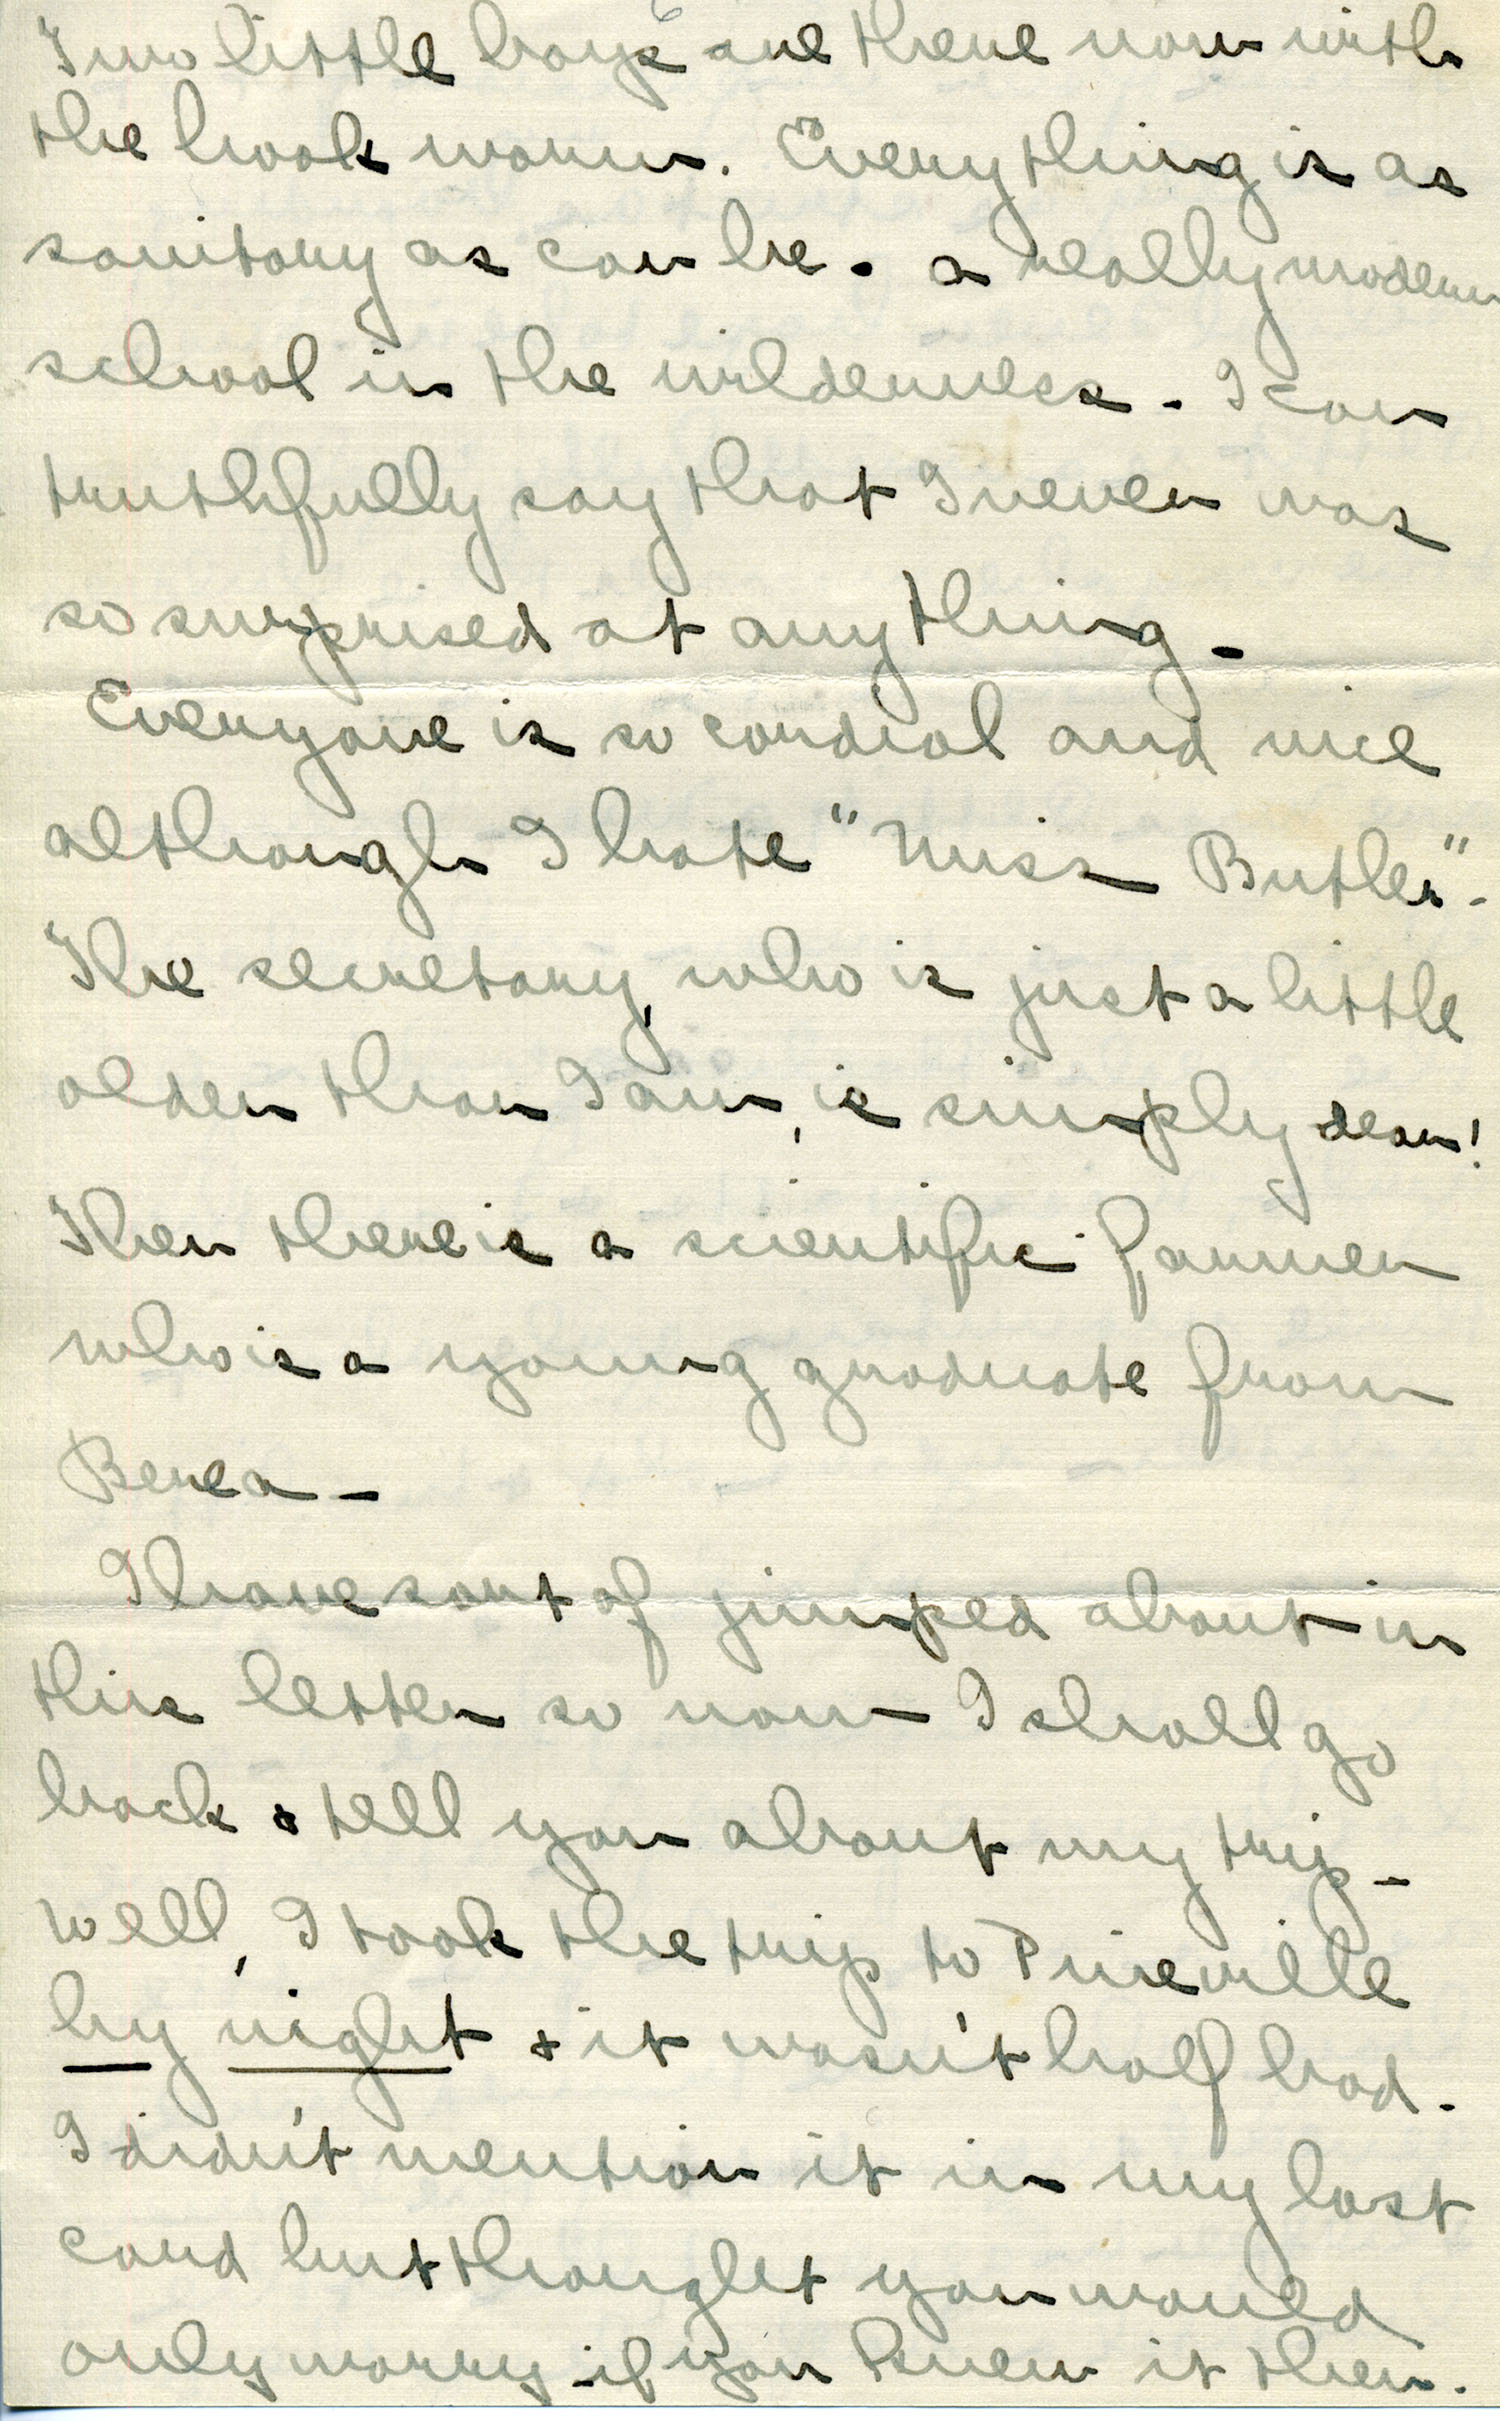 6
Two little boys are there now with
the hook worm. Everything is as
sanitary as can be. a really modern
school in the wilderness. I can
truthfully say that I never was
so surprised at anything -
Everyone is so cordial and nice
although I hate "Miss Butler".
The secretary, who is just a little
older than I am, is simply dear!
Then there is a scientific farmer
who is a young graduate from
Berea -
I have sort of jumped about in
this letter so now I shall go
back & tell you about my trip -
Well, I took the trip to Pineville
by night & it wasn't half bad.
I didn't mention it in my last
card but thought you would
only worry if you knew it then.